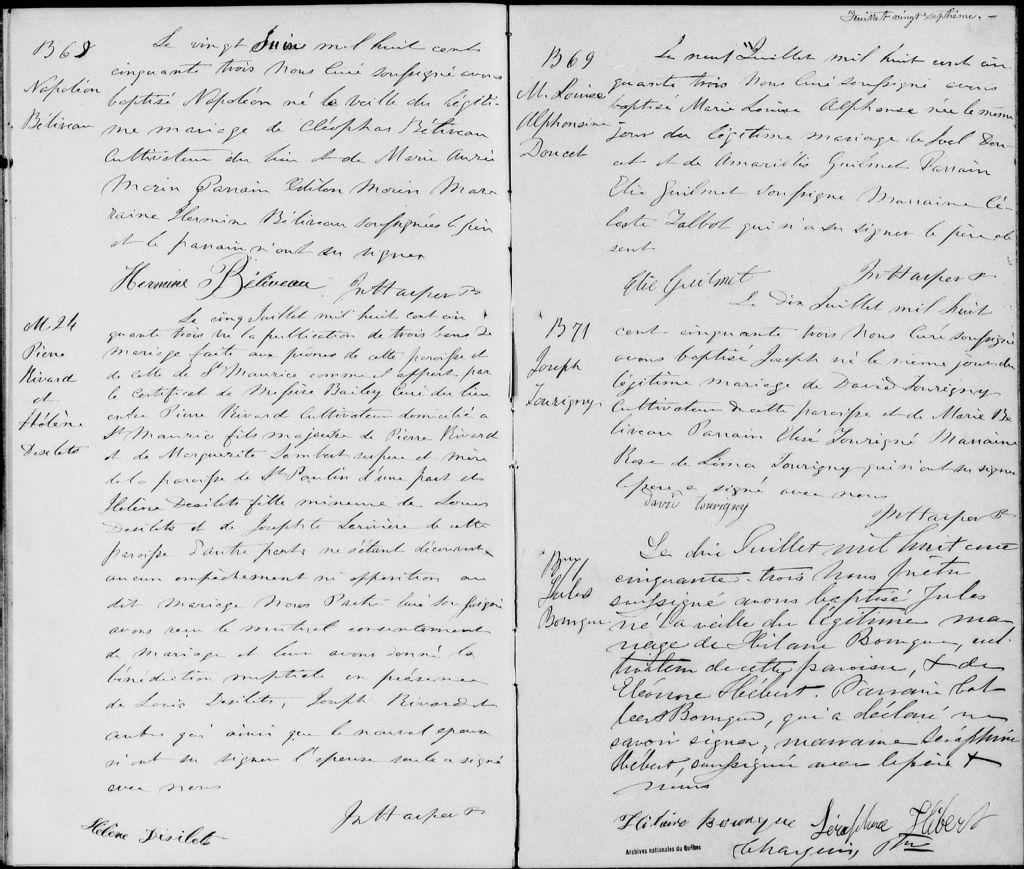 B68
Napoléon
Béliveau
Le vingt Juin mil huit cent
cinquante trois Nous Curé soussigné avons
baptisé Napoléon né la veille du légiti-
me mariage de Cléophas Béliveau
Cultivateur du lieu et de Marie
Morin Parrain Edilon Morin Mar-
raine Hermine Béliveau soussignées le père
et le parrain n'ont su signer
Hermine Béliveau JnHarper Ptr
M. 24
Pierre
Rivard
et
Hélène
Desilets
Le cinq Juillet mil huit cent cin
quante trois vu la publication de trois bans de
mariage faite aux prônes de cette paroisse et
de celle de St Maurice comme il appert par
le certificat de Messire Bailey Curé du lieu
entre Pierre Rivard Cultivateur domicilié à
St Maurice fils majeur de Pierre Rivard
et de Marguerite Lambert ses père et mère
de la paroisse de St Paulin d'une part et
Hélène Desilets fille mineure de Louis
Desilets et de Josephte de cette
paroisse d'autre part ne s'étant découvert
aucun empêchement ni opposition au
dit mariage Nous Prêtre Curé soussigné
avons reçu le mutuel consentement
de mariage et leur avons donné la
bénédiction nuptiale en présence
de Louis Desilets, Joseph Rivard et
autres qui ainsi que le nouvel époux
n'ont su signer l'épouse seule a signé
avec nous
JnHarper Ptr
Hélène Disilets
Feuillet vingt septième. —
B69
M. Louise
Alphonsine
Doucet
Le neuf Juillet mil huit cent cin
quante trois Nous Curé soussigné avons
baptisé Marie Louise Alphonse née le même
jour du légitime mariage de Joel Dou-
cet et de Amarillis Guilmet Parrain
Elie Guilmet soussigné Marraine Cé-
leste Talbot qui n'a su signer le père ab
sent
Elie Guilmet JnHarper Ptr
B71
Joseph
Tourigny
Le Dix Juillet mil huit
cent cinquante trois Nous Curé soussigné
avons baptisé Joseph né le même jour du
légitime mariage de David Tourigny
Cultivateur de cette paroisse et de Marie Be
liveau Parrain Elisé Tourigné Marraine
Rose de Lima Tourigny qui n'ont su signer
le père a signé avec nous
david tourigny
JnHarper Ptr
Jules
Bourque
Le dix Juillet mil huit cent
cinquante-trois Nous Prêtre
soussigné avons baptisé Jules
né la veille du légitime ma
riage de Hilaire Bourque, cul
tivateur de cette paroisse, & de
Eléonore Hébert. Parrain
Bourque, qui a déclaré ne
savoir signer, marraine Séraphine
Hébert, soussignée avec le père &
nous
Hilaire Bourque Séraphine Hébert
Ptre
Archives nationales du Québec